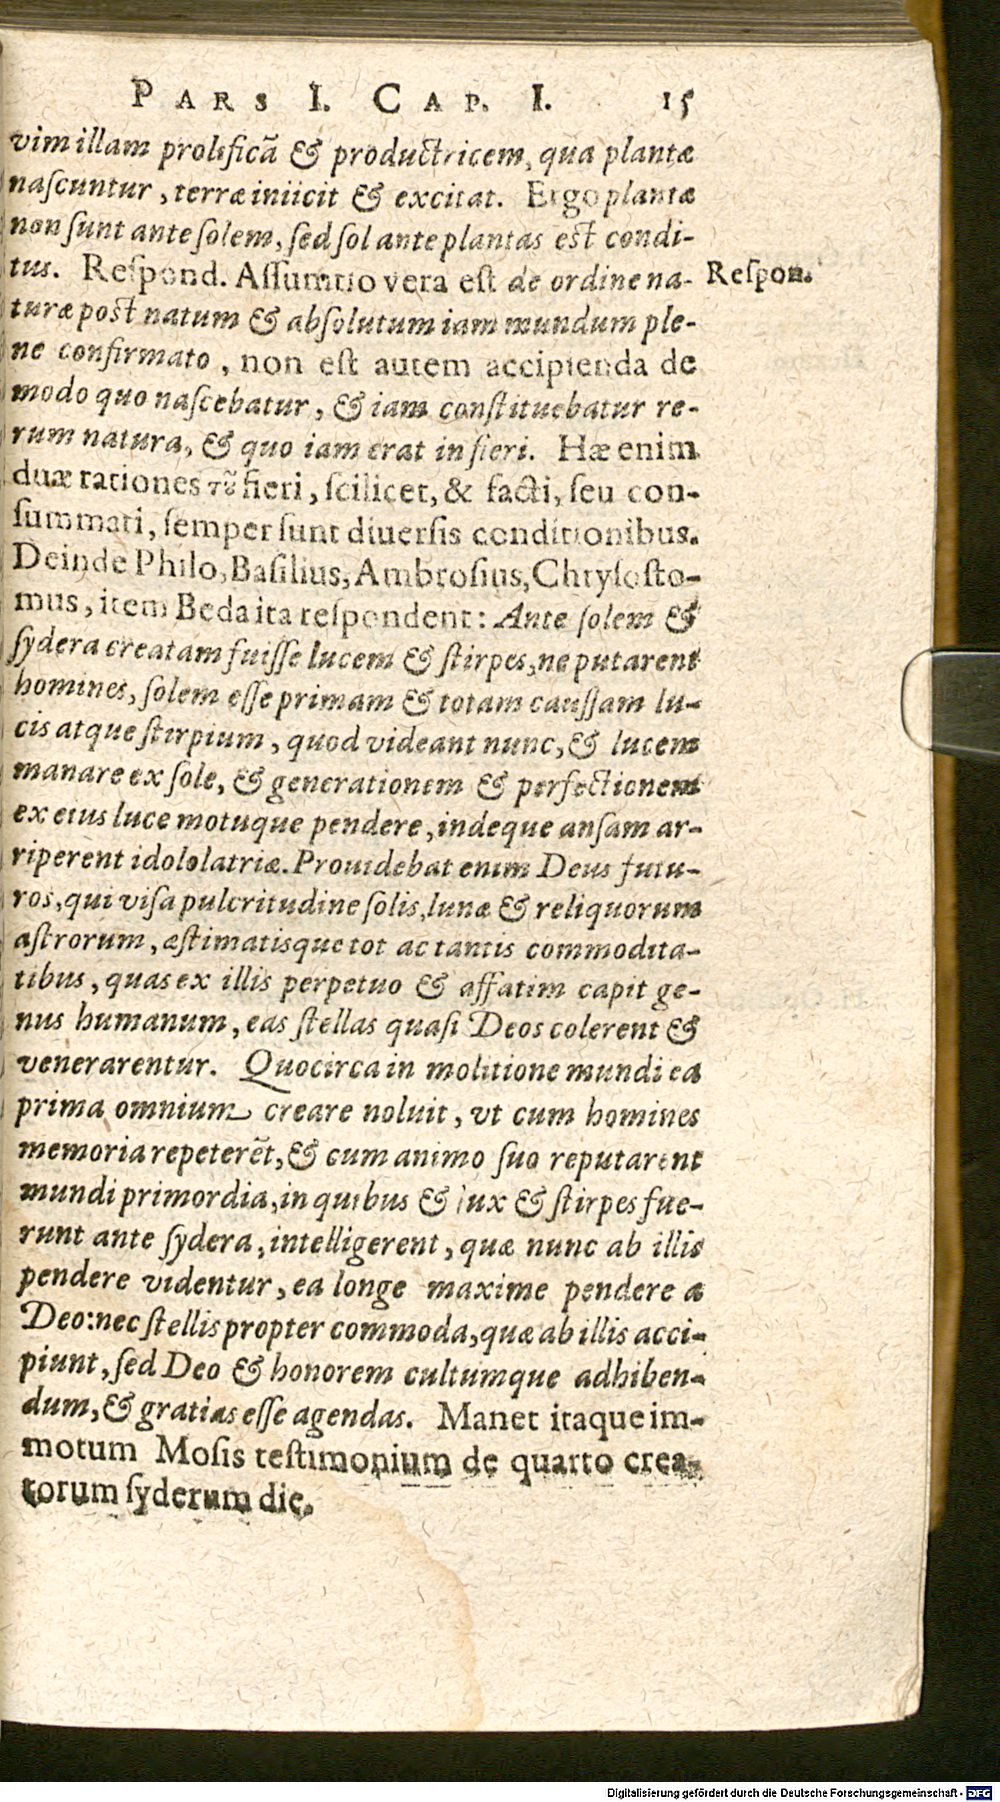 PARS I. CAP. I. 15
vim illam prolificã & productricem, qua plantæ
naſcuntur, terræ iniicit & excitat. Ergo plantæ
non ſunt ante ſolem, ſed ſol ante plantas eſt condi-
tus. Reſpond. Aſſumtio vera eſt de ordine na-
Reſpon.
turæ post natum & abſolutum iam mundum ple-
ne confirmato, non eſt autem accipienda de
modo quo naſcebatur, & iam conſtituebatur re-
rum natura, & quo iam erat in fieri. Hæ enim
duæ rationes τῦ fieri, ſcilicet, & facti, ſeu con-
ſummati, ſemper ſunt diuerſis conditionibus.
Deinde Philo, Baſilius, Ambroſius, Chryſoſto-
mus, item Beda ita reſpondent: Ante ſolem &
ſydera creatam fuiſſe lucem & ſtirpes, ne putarent
homines, ſolem eſſe primam & totam cauſſam lu-
cis atque ſtirpium, quod videant nunc, & lucem
manare ex ſole, & generationem & perfectionem
ex eius luce motuque pendere, indeque anſam ar-
riperent idololatriæ. Prouidebat enim Deus futu-
ros, qui viſa pulcritudine ſolis, lunæ & reliquorum
aſtrorum, æſtimatisque tot ac tantis commodita-
tibus, quas ex illis perpetuo & affatim capit ge-
nus humanum, eas ſtellas quaſi Deos colerent &
venerarentur. Quocirca in molitione mundi ea
prima omnium creare noluit, vt cum homines
memoria repeterẽt, & cum animo ſuo reputarent
mundi primordia, in quibus & lux & ſtirpes fue-
runt ante ſydera, intelligerent, quæ nunc ab illis
pendere videntur, ea longe maxime pendere a
Deo: nec ſtellis propter commoda, quæ ab illis acci-
piunt, ſed Deo & honorem cultumque adhiben-
dum, & gratias eſſe agendas. Manet itaque im-
motum Moſis teſtimonium de quarto crea-
torum ſyderum die.
Digitalisierung gefördert durch die Deutsche Forschungsgemeinschaft - DFG